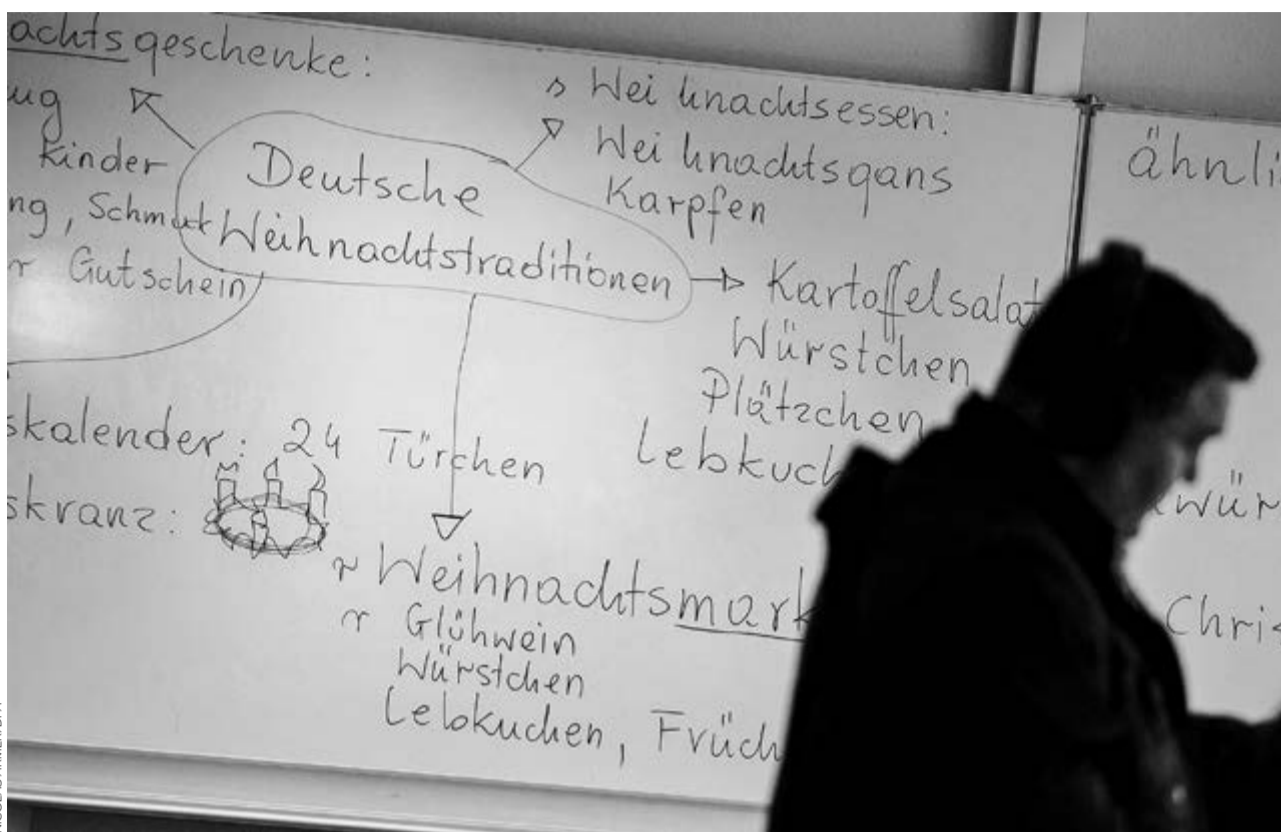 achtsgeschenke:
ug
Kinder
ng, Schmuck
r Gutschein
Deutsche
Weihnachtstraditionen
s Weihnachtsessen:
Weihnachtsgans
Karpfen
Kartoffelsalat
Würstchen
Plätzchen
Lebkuch
skalender: 24 Türchen
skranz:
r Weihnachtsmark
r Glühwein
Würstchen
Lebkuchen, Früch
ähnli
wür
Chris